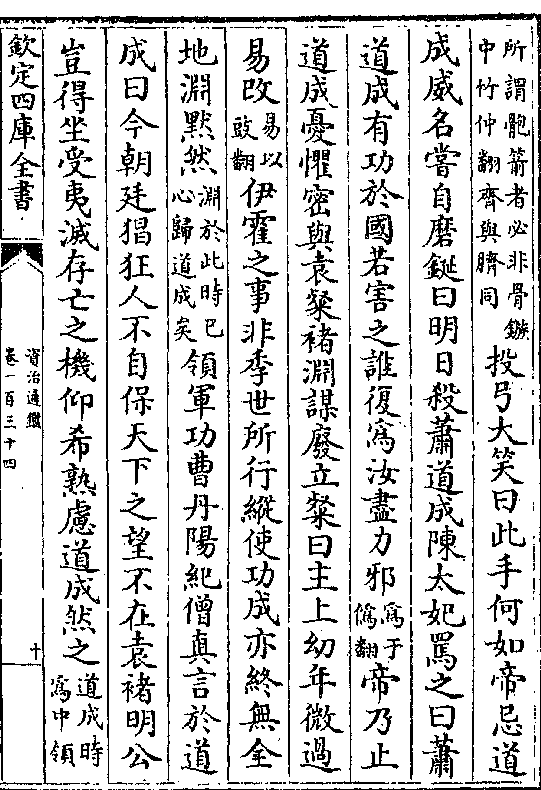 所謂骲箭者必非骨鏃
中竹仲翻齊與臍同
投弓大笑曰此手何如帝忌道
成威名嘗自磨鋋曰明日殺蕭道成陳太妃罵之曰蕭
道成有功於國若害之誰復爲汝盡力邪
爲于
僞翻
帝乃止
道成憂懼密與袁粲褚淵謀廢立粲曰主上幼年微過
易改
易以
豉翻
伊霍之事非季世所行縱使功成亦終無全
地淵默然
淵於此時已
心歸道成矣
領軍功曹丹陽紀僧真言於道
成曰今朝廷猖狂人不自保天下之望不在袁褚明公
豈得坐受夷滅存亡之機仰希熟慮道成然之
道成時
爲中領
欽定四庫全書
資治通鑑
卷一百三十四
十